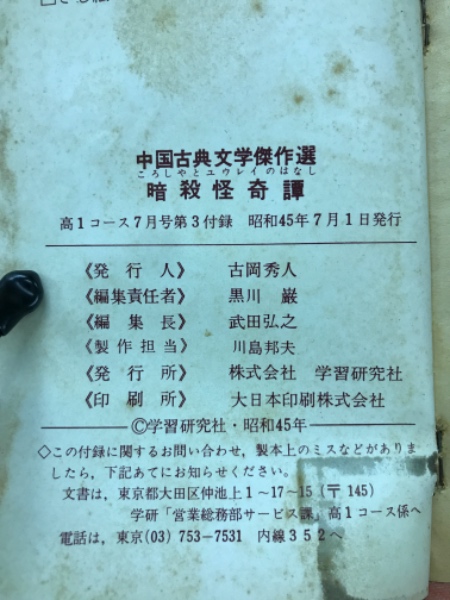 中国古典文学傑作選
ころしやとユウレイのはなし
暗殺怪奇譚
高1コース7月号第3付録 昭和45年7月1日発行
《発行人》 古岡秀人
《編集責任者》 黒川 巌
《編集長》 武田弘之
《製作担当》 川島邦夫
《発行所》 株式会社 学習研究社
《印刷所》 大日本印刷株式会社
©学習研究社・昭和45年
◇この付録に関するお問い合わせ,製本上のミスなどがありま
したら,下記あてにお知らせください。
文書は,東京都大田区仲池上1〜17〜15(〒145)
学研「営業総務部サービス課」高1コース係へ
電話は,東京(03)753-7531 内線352へ